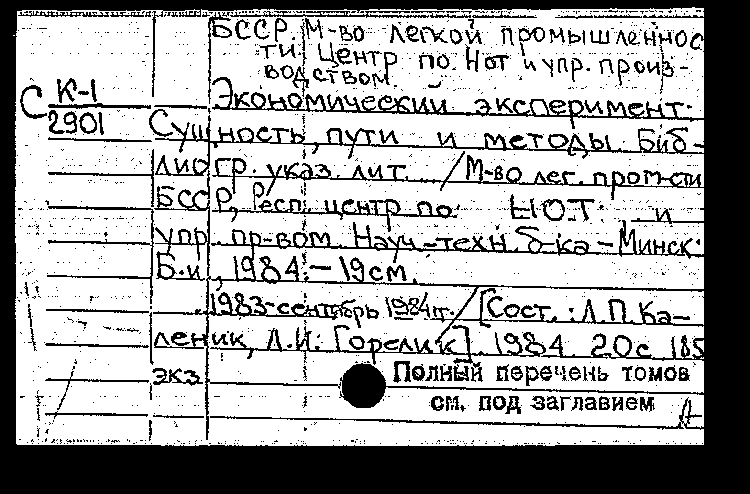 БССР. М-во легкой промышленнос
ти. Центр по Нот и упр. произ-
водством.
С К-1
2901
Экономический эксперимент:
Сущность, пути и методы. Биб-
лиогр. указ. лит. / М-во лег. пром-сти
БССР, Респ. центр по НОТ и
упр. пр-вом. Науч.-техн. б-ка – Минск:
Б.и., 1984. – 19 см.
1983-сентябрь 1984 гг. / [Сост.: Л.П. Ка-
леник, Л.И. Горелик]. 1984. 20с. 185
экз.
Полный перечень томов
см. под заглавием